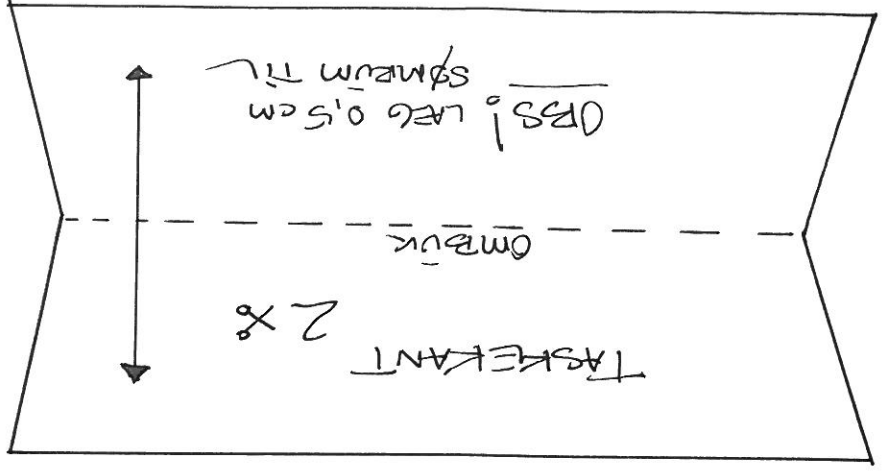 TASKEKANT
2 x
OMBUK
OBS! LÆG 0,5 cm
SØMRUM TIL